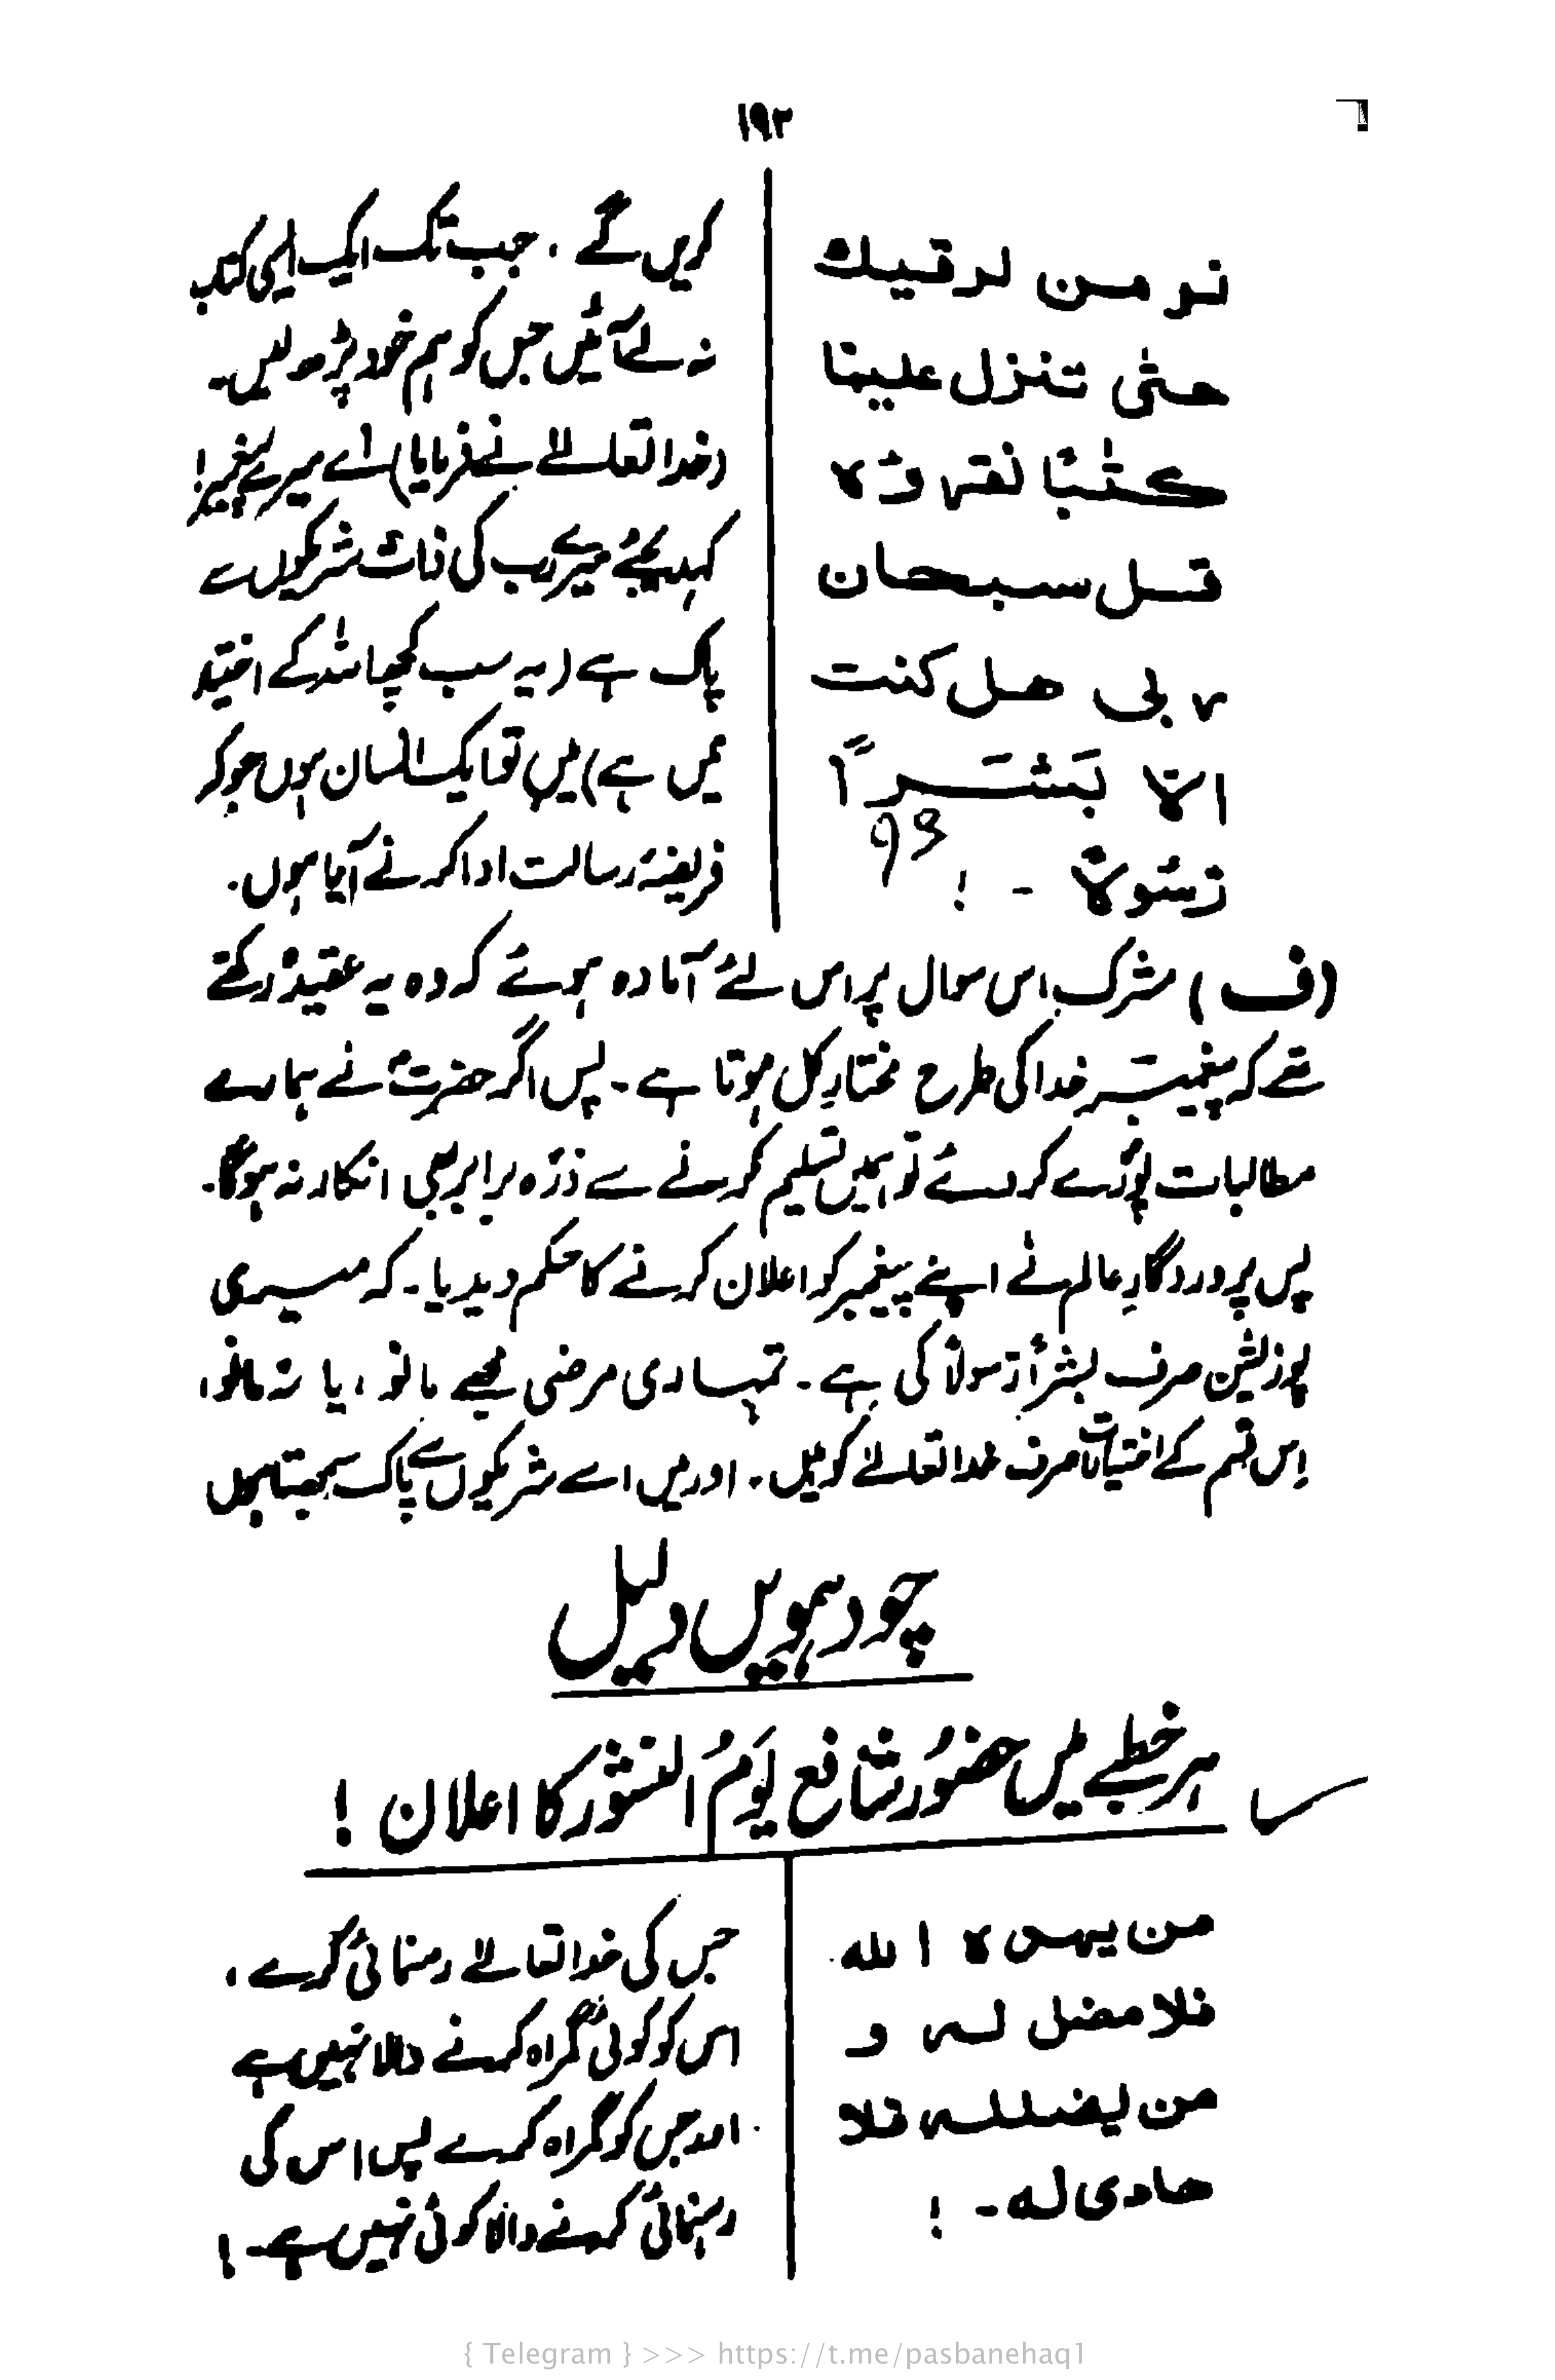 ۱۹۲
نو من لرقيك
حتى تنزل علينا
كتٰبًا نقرؤه
قل سبحان
ربی هل كنت
الا بَشَراً
رسُولا - !
کریں گے ، جب تک ایک ایسی کتاب
نہ لے آئیں جس کو ہم خود پڑھ لیں۔
(خدا تعالےٰ نے فرمایا) اے میرے پیغمبر!
کہدیجئے میرے رب کی ذات شریکوں سے
پاک ہے (یہ سب کچھ اللہ کے اختیار
میں ہے) میں تو ایک انسان ہوں جو کہ
فریضۂ رسالت ادا کرنے آیا ہوں۔
(ف) مشرک اس سوال پر اس لئے آمادہ ہوئے کہ وہ یہ عقیدہ رکھتے
تھے کہ پیغمبر خدا کی طرح مختارِ کل ہوتا ہے۔ پس اگر حضرتؐ نے ہمارے
مطالبات پورے کر دئے تو ہمیں تسلیم کرنے سے ذرہ برابر بھی انکار نہ ہوگا۔
پس پروردگارِ عالم نے اپنے پیغمبر کو اعلان کرنے کا حکم دیدیا۔ کہ میری
پوزلیشن صرف بشراً رسولاً کی ہے۔ تمہاری مرضی مجھے مانو ، یا نہ مانو،
اِس قسم کے اختیارات صرف خدا تعالےٰ کو ہیں۔ اور میں اسے شریکوں سے پاک سمجھتا ہوں
چودہویں دلیل
ہر خطبے میں حضُور شافع یَومُ النشُور کا اعلان !
من يهده الله
فلا مضل له و
من يضلله فلا
هادی له۔ !
جس کی خدا تعالےٰ رہنمائی کرے ،
اس کو کوئی گمراہ کرنے والا نہیں ہے
اور جس کو گمراہ کرے پس اس کی
رہنمائی کرنے والا کوئی نہیں ہے۔!
{ Telegram } >>> https://t.me/pasbanehaq1